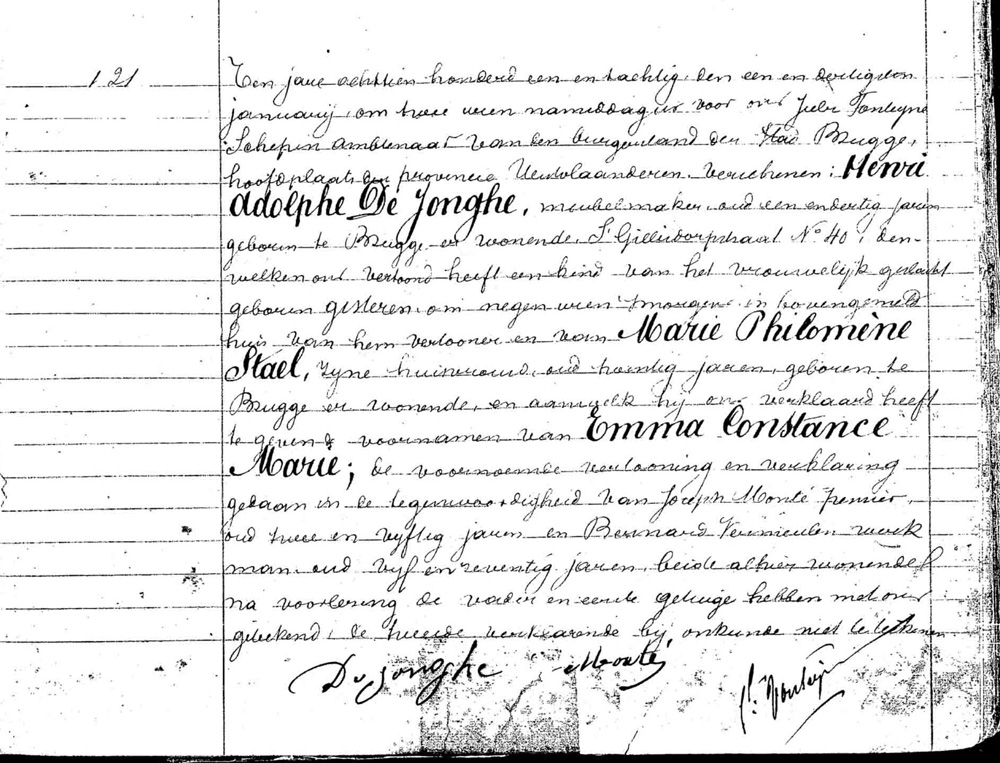 121
Ten jare achttien honderd een en tachtig, den een en dertigsten
january, om twee uren namiddag zijn voor ons Jules Fonteyne
Schepen ambtenaar van den burgerstand der Stad Brugge,
hoofdplaats der provincie Westvlaanderen verschenen: Henri
Adolphe De Jonghe, meubelmaker, oud een en dertig jaren
geboren te Brugge er wonende, St Gillisdorpstraat No 40, den-
welken ons vertoond heeft een kind van het vrouwelijk geslacht
geboren gisteren om negen uren 'smorgens in bovengemeld
huis van hem vertooner en van Marie Philomène
Stael, zyne huisvrouw, oud twintig jaren, geboren te
Brugge er wonende, en aan welk hy ons verklaard heeft
te geven de voornamen van Emma Constance
Marie; de voornoemde vertooning en verklaring
gedaan in de tegenwoordigheid van Joseph Monté
oud twee en vyftig jaren en Bernard Vermeulen werk
man oud vyf en zeventig jaren, beide alhier wonende
na voorlezing de vader en eerste getuige hebben met ons
geteekend, de tweede verklarende by onkunde niet te teekenen
De Jonghe Monté